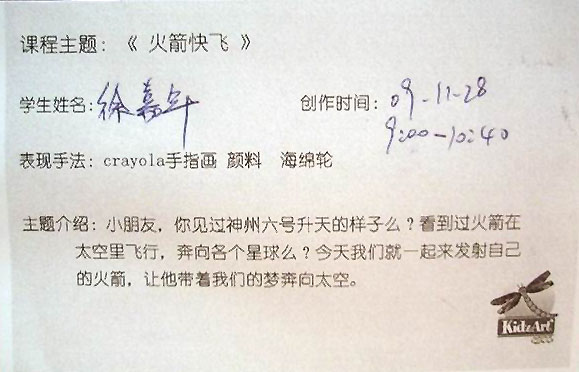 课程主题：《 火箭快飞 》
学生姓名：徐嘉年 创作时间：09-11-28
9:00-10:40
表现手法：crayola手指画 颜料 海绵轮
主题介绍：小朋友，你见过神州六号升天的样子么？看到过火箭在
太空里飞行，奔向各个星球么？今天我们就一起来发射自己
的火箭，让他带着我们的梦奔向太空。
KidzArt